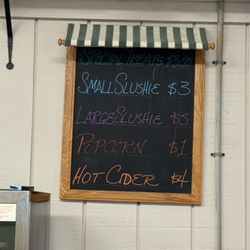 SPECIAL TREATS $3.50
SMALL SLUSHIE $3
LARGE SLUSHIE $5
POPCORN $1
HOT CIDER $4